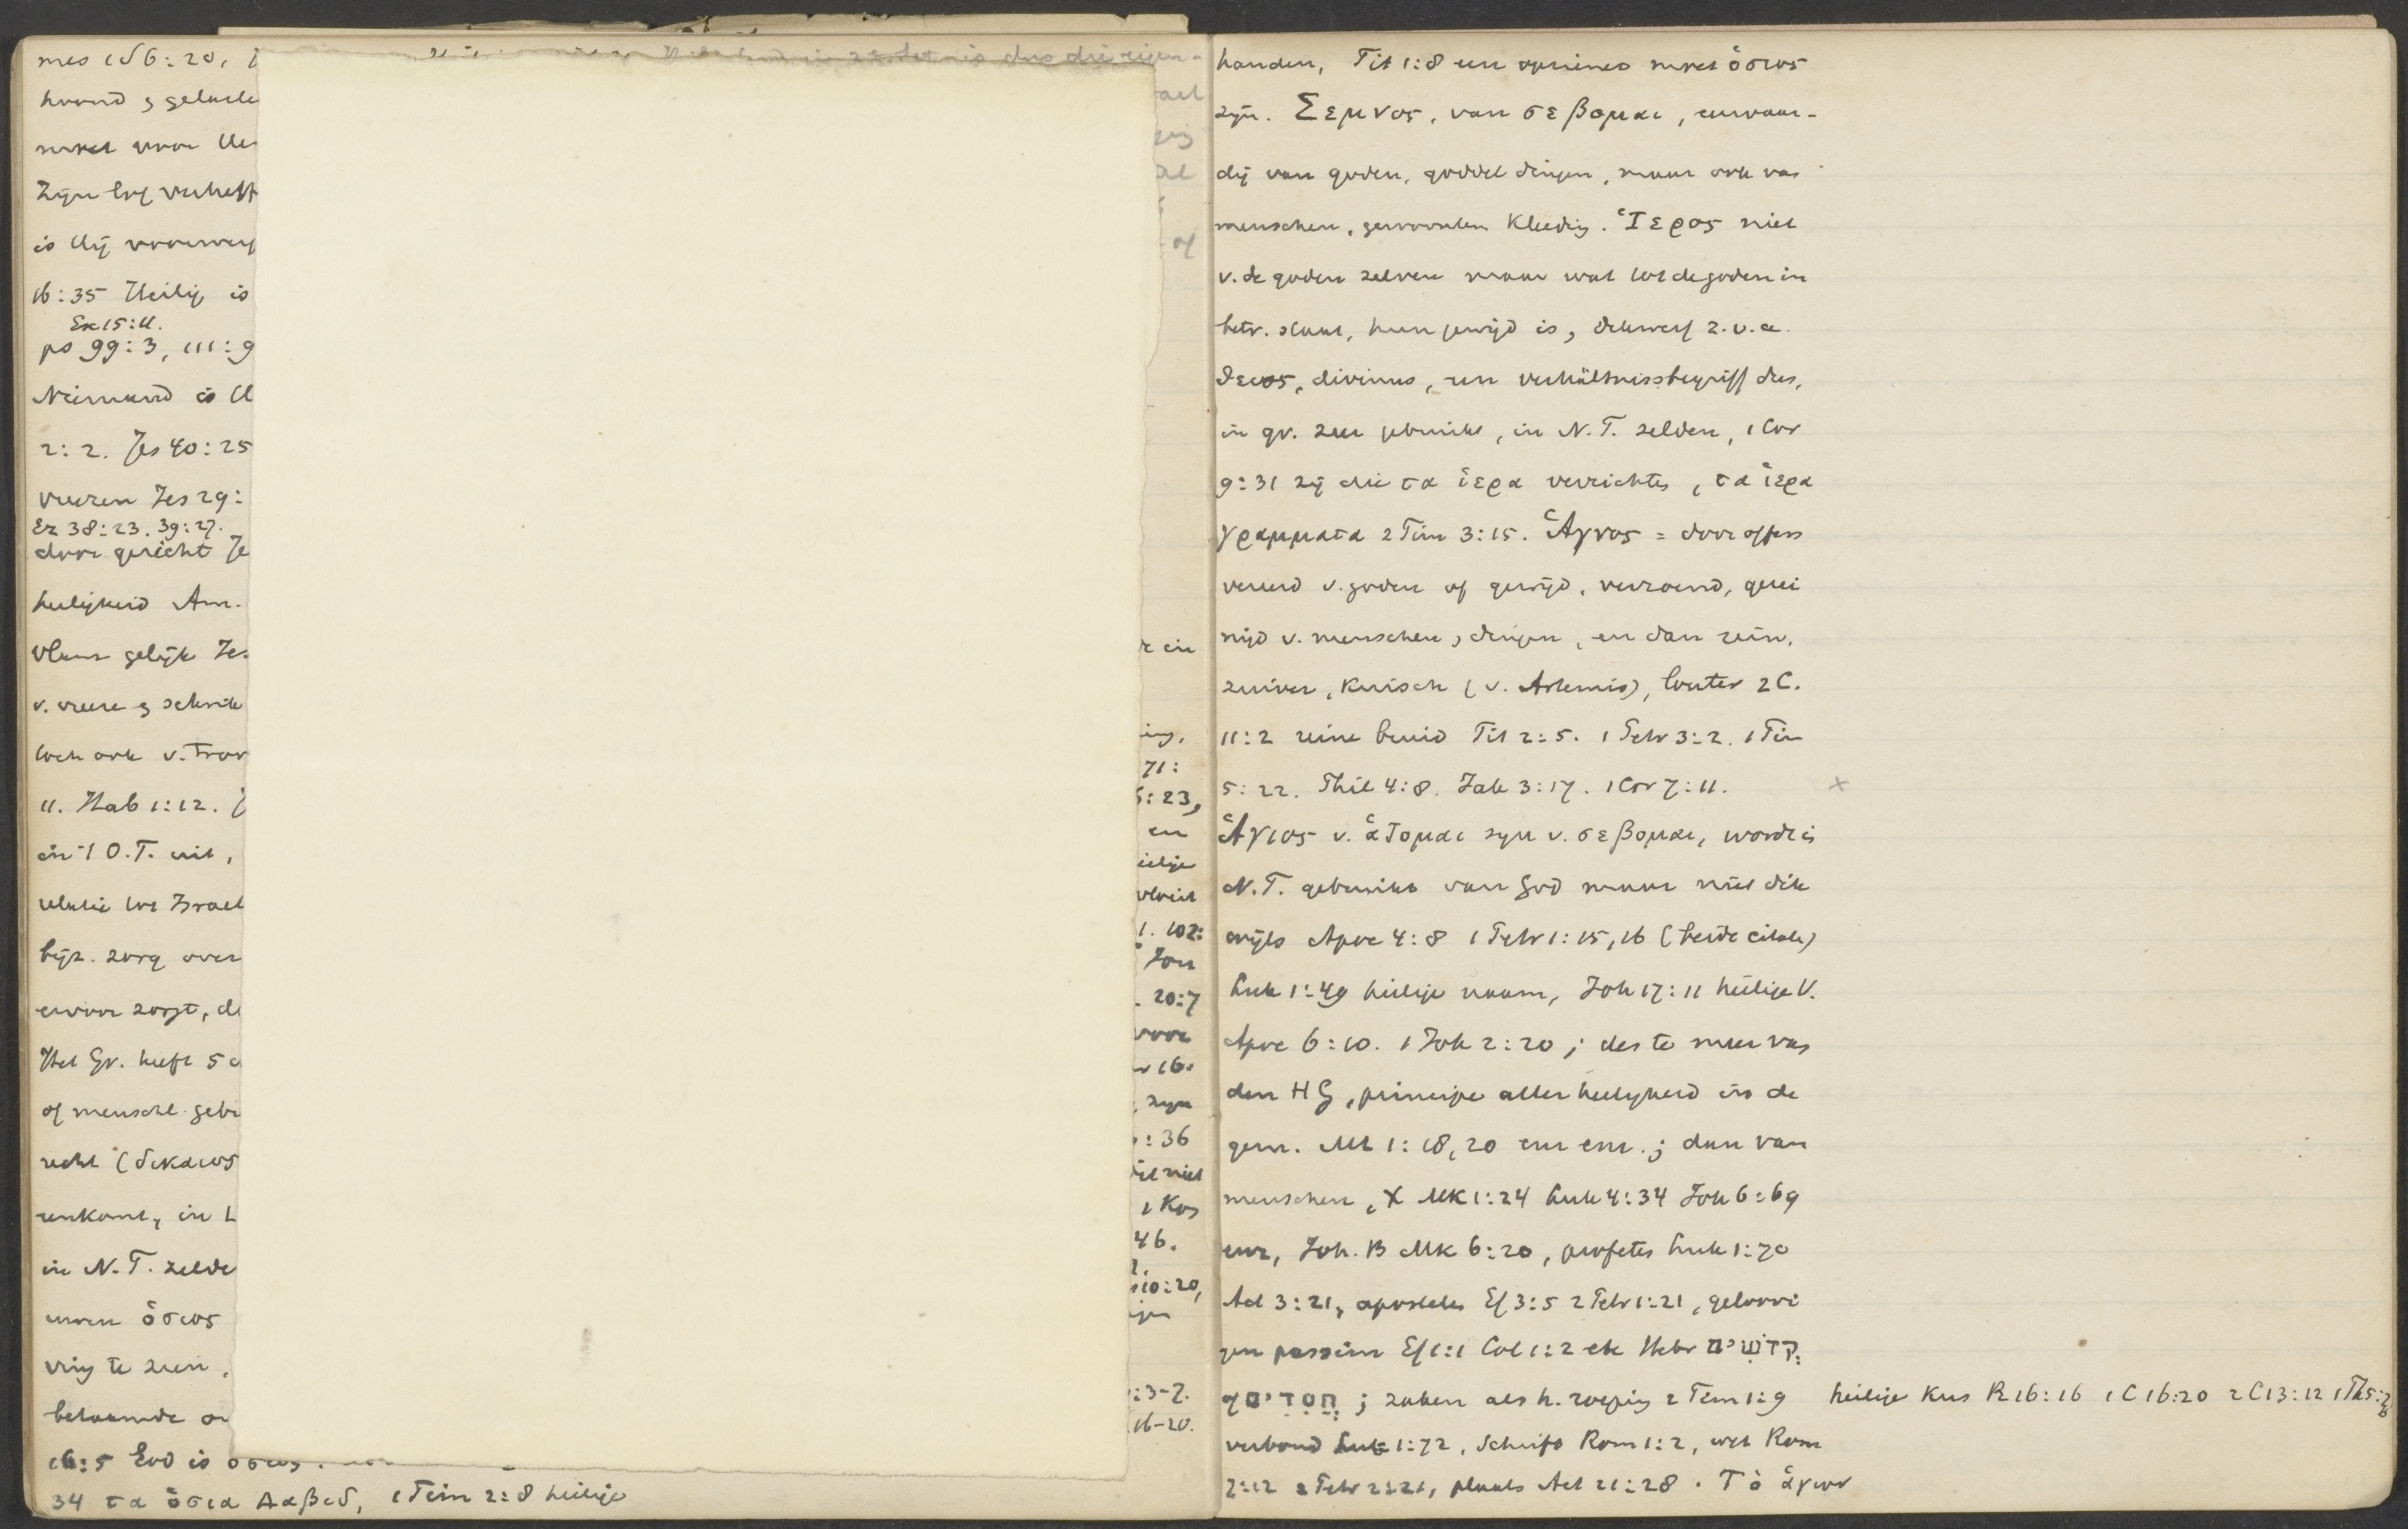 mes 156:20,
hoond &
moet voor
zijn lof verheft
is bij voorwerp
16:35 Heilig is
Ex 15:11.
ps 99:3, 111:9
Niemand is
2:2. Jes 40:25
vreezen Jes 29:
Ez 38:23. 39:27.
door gericht Je
heiligheid Am.
vlam gelijk Jes
v. vreeze & schrik
toch ook v. troo
11. Hab 1:12. J
in 't O.T. uit,
relatie tot Israel
bijz. zorg over
ervoor zorgt, d
Het Gr. heeft 5
of menschl. geb
recht (δικαιος
in
in N.T. zelde
ὁσιος
ving te zien,
beloemde
16:5 God is ὁσιος.
34 τα ὁσια Δαβιδ, 1 Tim 2:8 heilige
is dus die eigen-
ael
al
of
in
ing,
71:
5:23,
en
eilige
1. 102:
Jon
. 20:7
voor
16.
zijn
: 36
niet
1 Kor
46.
10:20,
:3-7.
16-20.
handen, Tit 1:8 een opziener moet ὁσιος
zijn. Σεμνος, van σεβομαι, eerwaar-
dig van goden, goddel dingen, maar ook van
menschen, gewoonten kleeding. Ἱερος niet
v. de goden zelven maar wat tot de goden in
betr. staat, hun gewijd is, z.v.a.
divinus, een verhältnissbegriff dus,
in gr. zeer gebruikt, in N.T. zelden, 1 Cor
9:31 zij die τα ἱερα verrichten, τα ἱερα
γραμματα 2 Tim 3:15. Ἁγνος = door offers
vereerd v. goden of gewijd, verzoend, gerei
nigd v. menschen, dingen, en dan rein,
zuiver, kuisch (v. Artemis), louter 2 C.
11:2 reine bruid Tit 2:5. 1 Petr 3:2. 1 Tim
5:22. Phil 4:8. Jak 3:17. 1 Cor 7:11.
×
Ἁγιος v. ἁζομαι syn v. σεβομαι, wordt in
N.T. gebruikt van God maar niet dik
wijls Apoc 4:8 1 Petr 1:15,16 (beide citate)
Luk 1:49 heilige naam, Joh 17:11 heilige V.
Apoc 6:10. 1 Joh 2:20; des te meer van
den HG, principe aller heiligheid in de
gem. Mt 1:18,20 enz enz.; dan van
menschen, X Mk 1:24 Luk 4:34 Joh 6:69
enz, Joh. B Mk 6:20, profeten Luk 1:70
Act 3:21, apostelen Ef 3:5 2 Petr 1:21, geloovi
gen passim Ef 1:1 Col 1:2 etc Hebr קדושים
of חסדים; zaken als h. roeping 2 Tim 1:9 heilige kus R 16:16 1 C 16:20 2 C 13:12 1 Th 5:26
verbond Luk 1:72, Schrift Rom 1:2, wet Rom
7:12 2 Petr 2:21, plaats Act 21:28. Τὸ ἁγιον